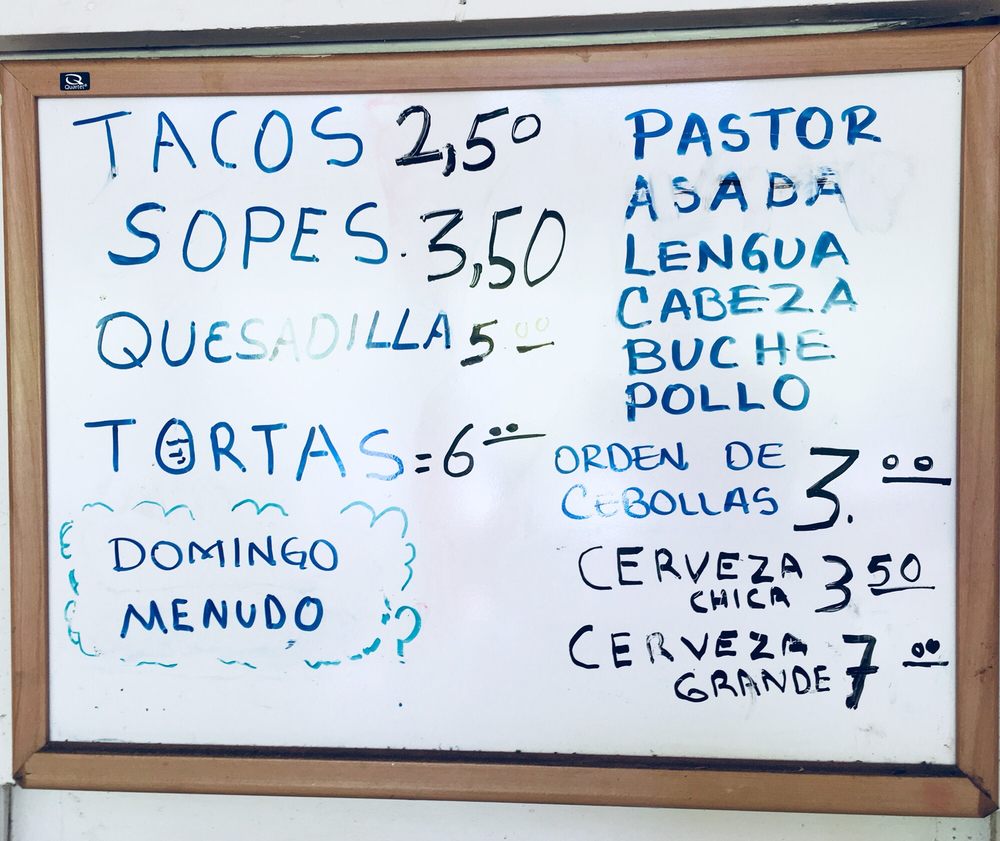 Quartet
TACOS 2,50
SOPES. 3,50
QUESADILLA 5 00
TORTAS = 6 00
DOMINGO
MENUDO
PASTOR
ASADA
LENGUA
CABEZA
BUCHE
POLLO
ORDEN DE
CEBOLLAS 3. 00
CERVEZA
CHICA 3 50
CERVEZA
GRANDE 7 00